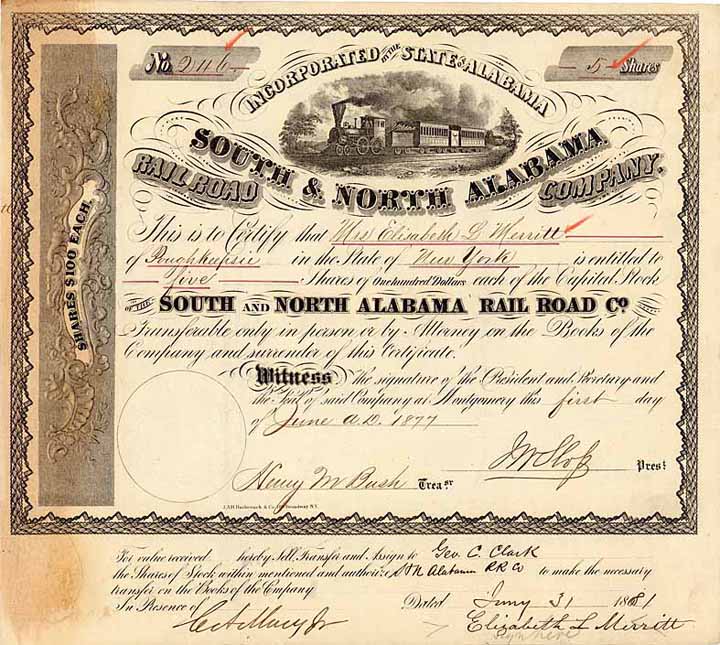 No. 246
5 Shares
INCORPORATED BY THE STATE OF ALABAMA
SOUTH & NORTH ALABAMA
RAIL ROAD COMPANY.
SHARES $100 EACH.
This is to Certify that Mrs Elizabeth L Merritt
of Poughkeepsie in the State of New York is entitled to
Five Shares of One Hundred Dollars each of the Capital Stock
OF THE SOUTH AND NORTH ALABAMA RAIL ROAD Co.
Transferable only in person or by Attorney on the Books of the
Company and surrender of this Certificate.
Witness the signature of the President and Secretary and
the Seal of said Company at Montgomery this first day
of June A.D. 1877
J W Sloss Prest
Henry M Bush Treasr
Broadway N.Y.
For value received hereby Sell, Transfer and Assign to Geo. C. Clark
the Shares of Stock within mentioned and authorize S & N Alabama RR Co to make the necessary
transfer on the Books of the Company
In Presence of Dated 31 1881
Elizabeth L Merritt
sign here